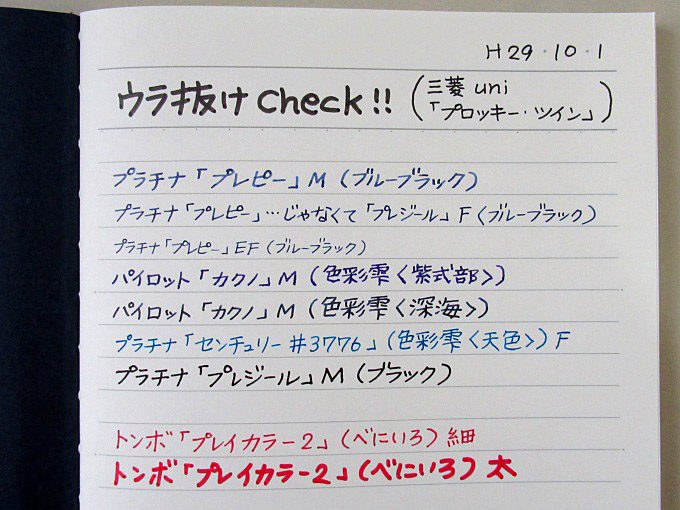 H29・10・1
ウラ抜けCheck!!(三菱uni
「プロッキー・ツイン」)
プラチナ「プレピー」M(ブルーブラック)
プラチナ「プレピー」…じゃなくて「プレジール」F〈ブルーブラック〉
プラチナ「プレピー」EF(ブルーブラック)
パイロット「カクノ」M(色彩雫〈紫式部〉)
パイロット「カクノ」M(色彩雫〈深海〉)
プラチナ「センチュリー#3776」(色彩雫〈天色〉)F
プラチナ「プレジール」M(ブラック)
トンボ「プレイカラー2」(べにいろ)細
トンボ「プレイカラー2」(べにいろ)太